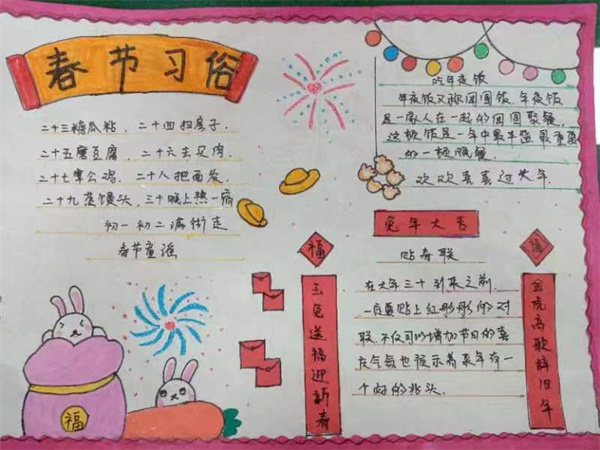 春节习俗
二十三糖瓜粘, 二十四扫房子
二十五磨豆腐, 二十六去买肉,
二十七宰公鸡, 二十八把面发
二十九蒸馒头, 三十晚上熬一宿
初一初二满街走
春节童谣
吃年夜饭
年夜饭又称团圆饭, 年夜饭
是一家人在一起的团圆聚餐
这顿饭是一年中最丰盛最重要
的一顿晚餐
欢欢喜喜过大年
兔年大吉
贴春联
在大年三十到来之前
一贴上红彤彤的对
联, 不仅可以增加节日的喜
庆气氛也预示着来年有一
个好的兆头.
福
玉兔送福迎新春
福
金虎高歌辞旧年
福